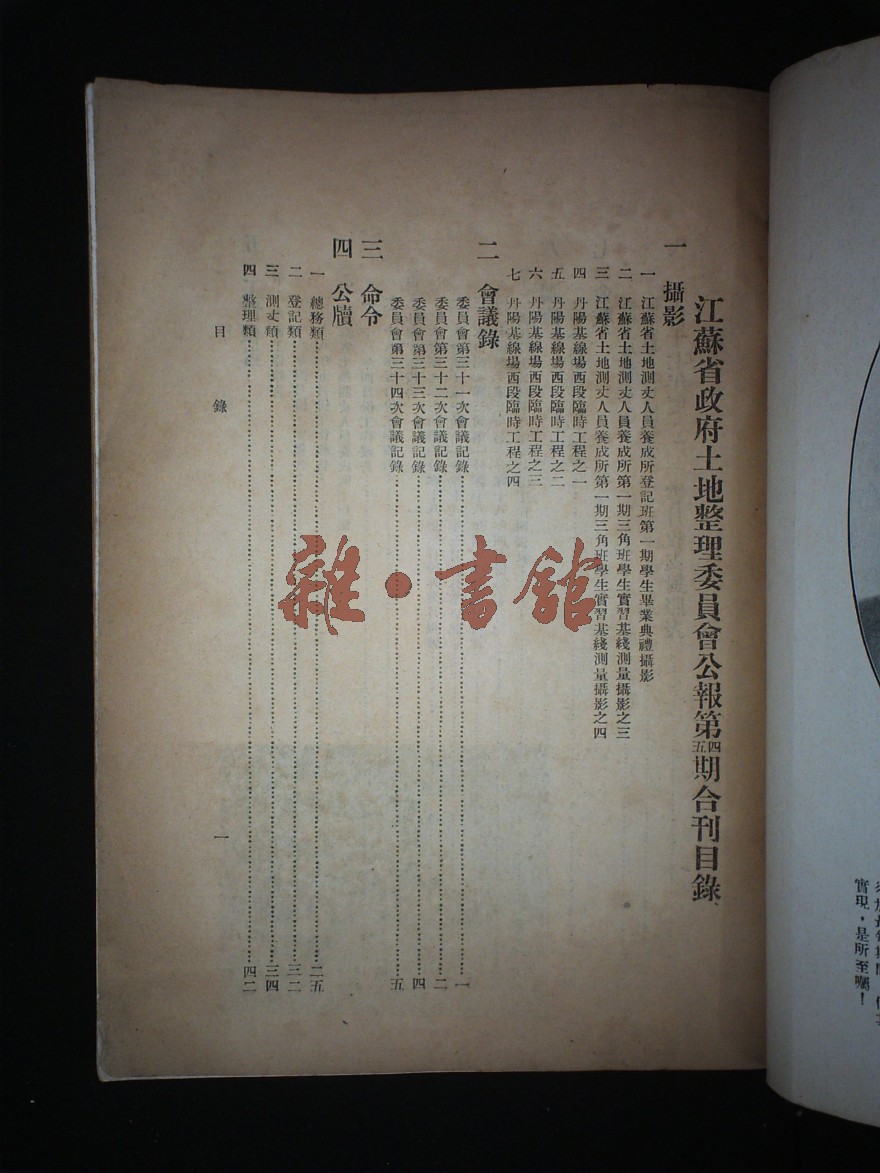 實現，是所至囑！
江蘇省政府土地整理委員會公報第四五期合刊目錄
一 攝影
一 江蘇省土地測丈人員養成所登記班第一期學生畢業典禮攝影
二 江蘇省土地測丈人員養成所第一期三角班學生實習基綫測量攝影之三
三 江蘇省土地測丈人員養成所第一期三角班學生實習基綫測量攝影之四
四 丹陽基線場西段臨時工程之一
五 丹陽基線場西段臨時工程之二
六 丹陽基線場西段臨時工程之三
七 丹陽基線場西段臨時工程之四
二 會議錄
委員會第三十一次會議記錄……………………一
委員會第三十二次會議記錄……………………二
委員會第三十三次會議記錄……………………四
委員會第三十四次會議記錄……………………五
三 命令
四 公牘
一 總務類……………………二五
二 登記類……………………三二
三 測丈類……………………三四
四 整理類……………………四二
目錄 一
雜·書館